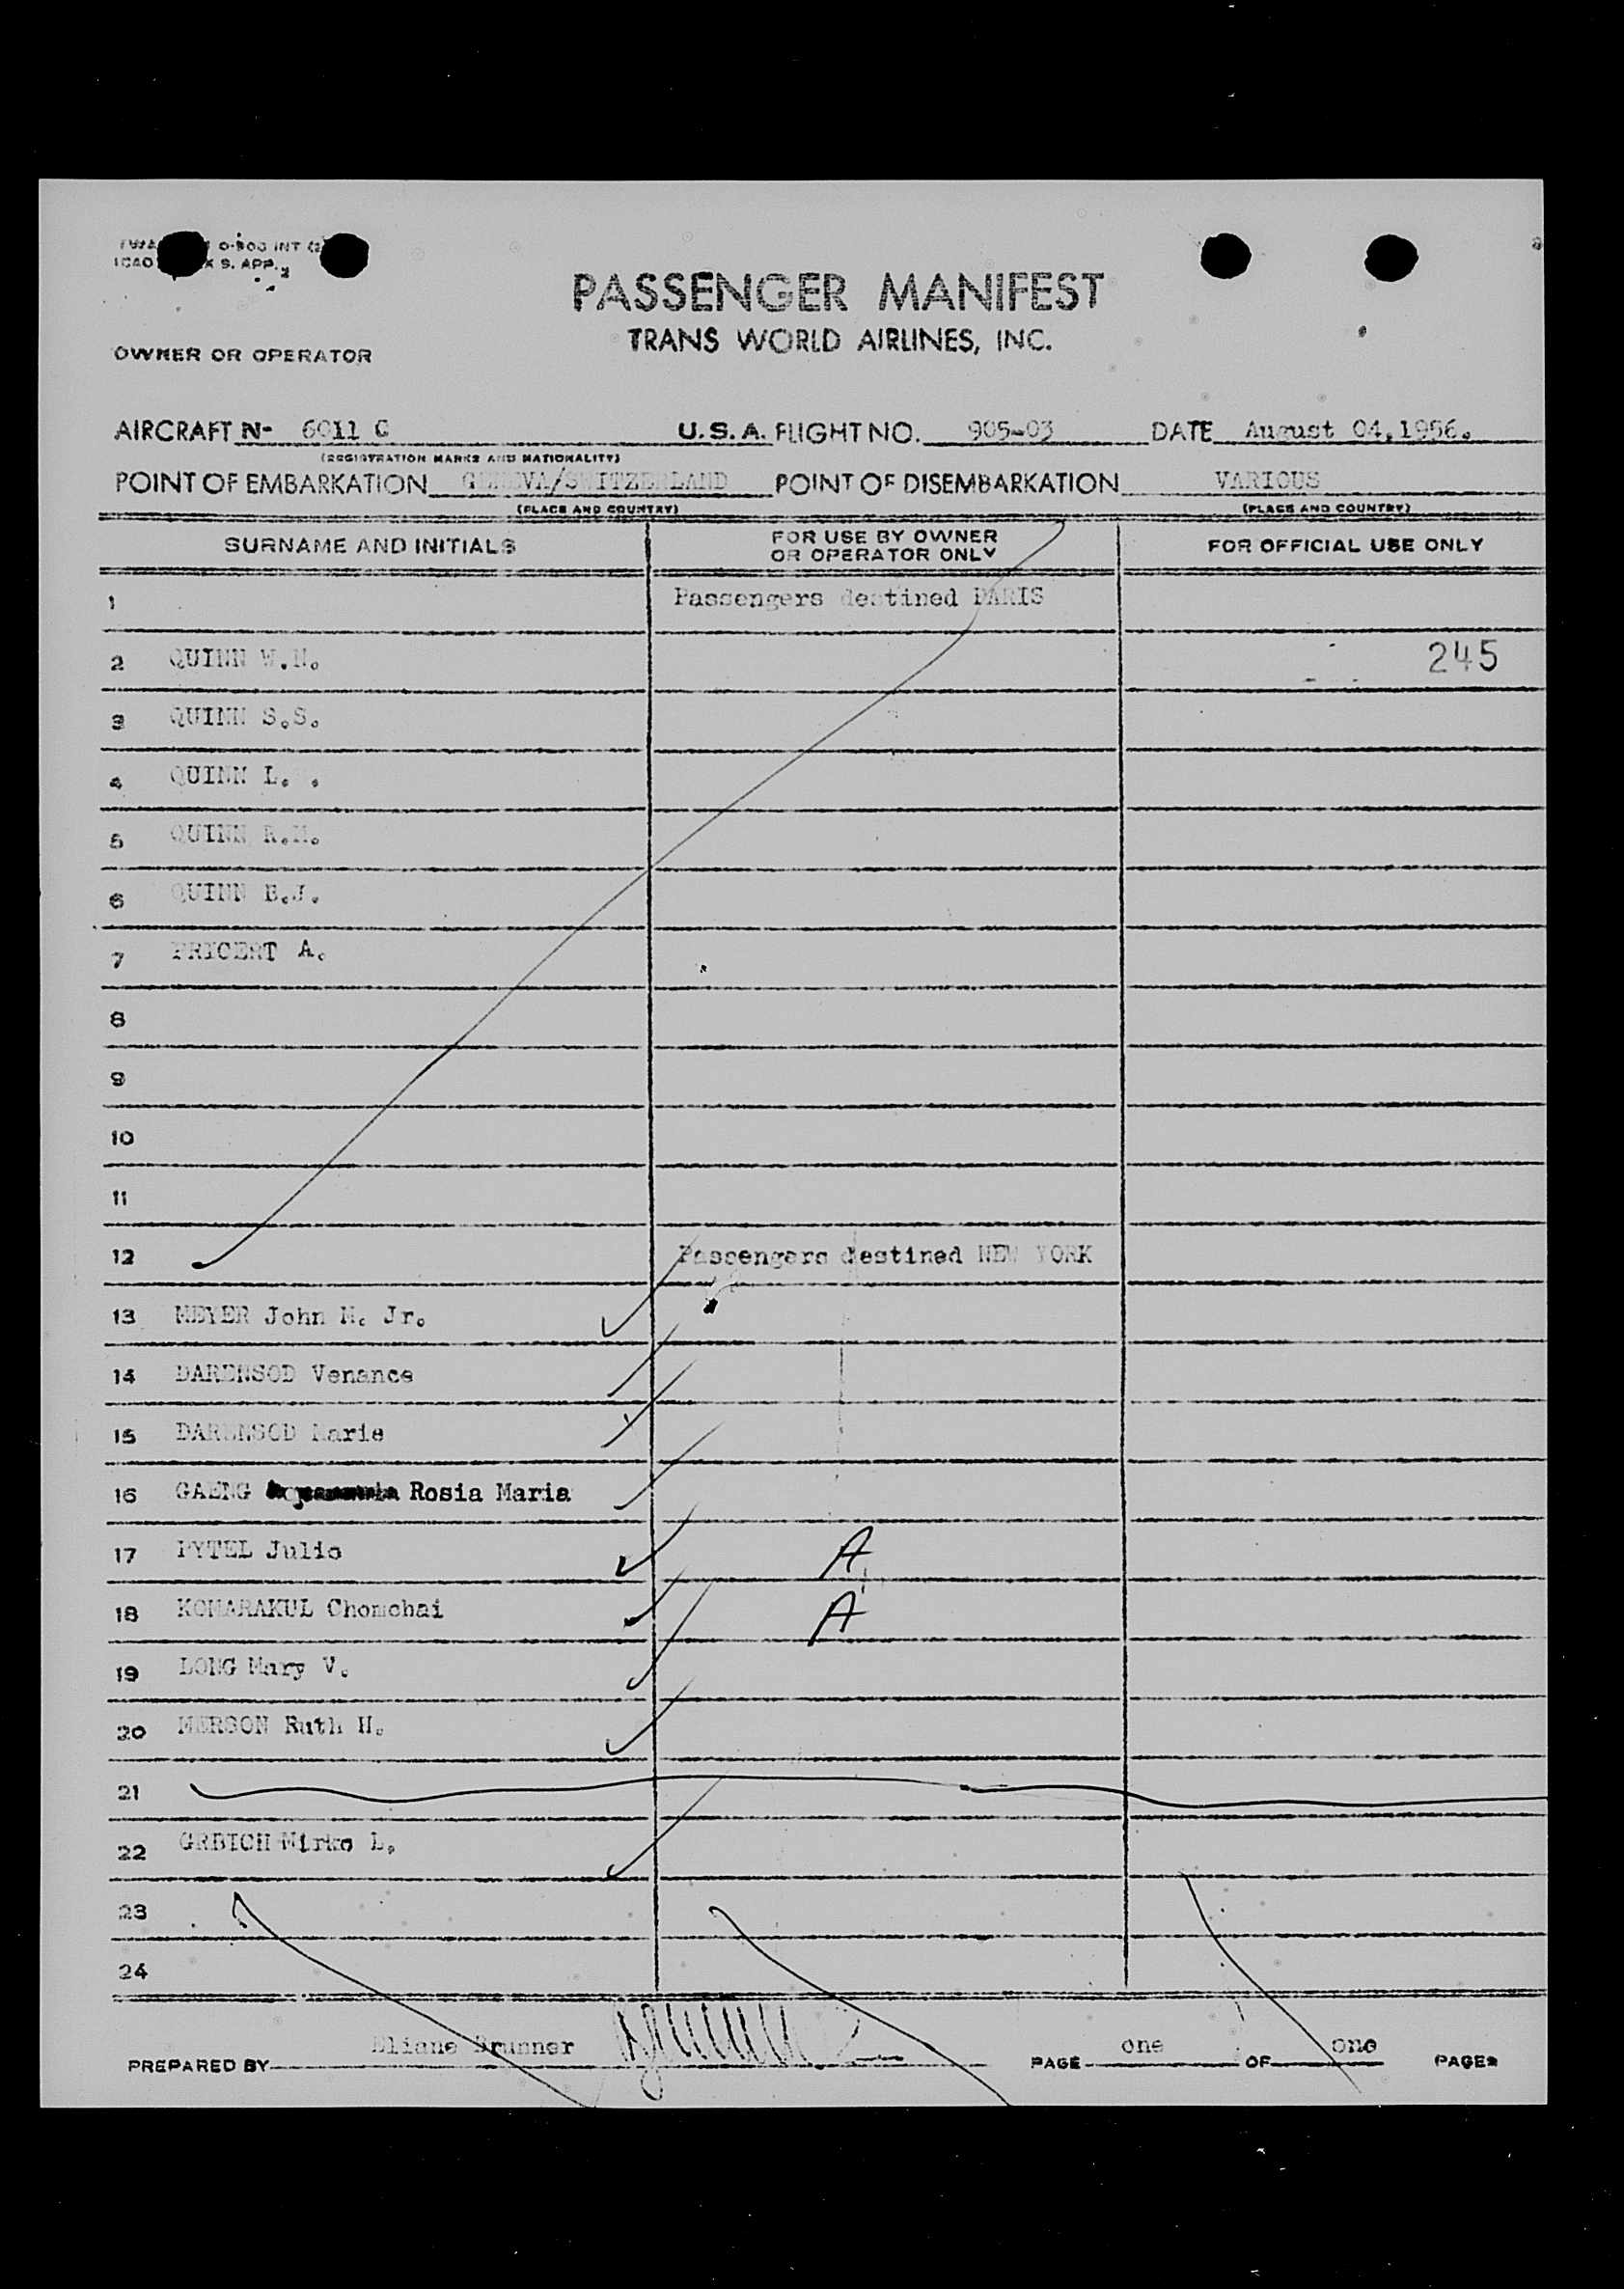 O-806 INT
ICAO X 9. APP. 2
PASSENGER MANIFEST
TRANS WORLD AIRLINES, INC.
OWNER OR OPERATOR
AIRCRAFT N- 6011 C U.S.A. FLIGHT NO. 905-03 DATE August 04,1956.
(REGISTRATION MARKS AND NATIONALITY)
POINT OF EMBARKATION GENEVA/SWITZERLAND POINT OF DISEMBARKATION VARIOUS
(PLACE AND COUNTRY) (PLACE AND COUNTRY)
SURNAME AND INITIALS FOR USE BY OWNER OR OPERATOR ONLY FOR OFFICIAL USE ONLY
1 Passengers destined PARIS
2 QUINN W.N. 245
3 QUINN S.S.
4 QUINN L. .
5 QUINN R.M.
6 QUINN B.J.
7 A.
8
9
10
11
12 Passengers destined NEW YORK
13 MEYER John M. Jr.
14 DARENSOD Venance
15 DARENSOD Marie
16 GAENG Rosia Maria
17 PYTEL Julio
18 KOMARAKUL Chomchai
19 LONG Mary V.
20 MERSON Ruth H.
21
22 GRBICH Mirko L.
23
24
PREPARED BY Eliane Brunner PAGE one OF one PAGES